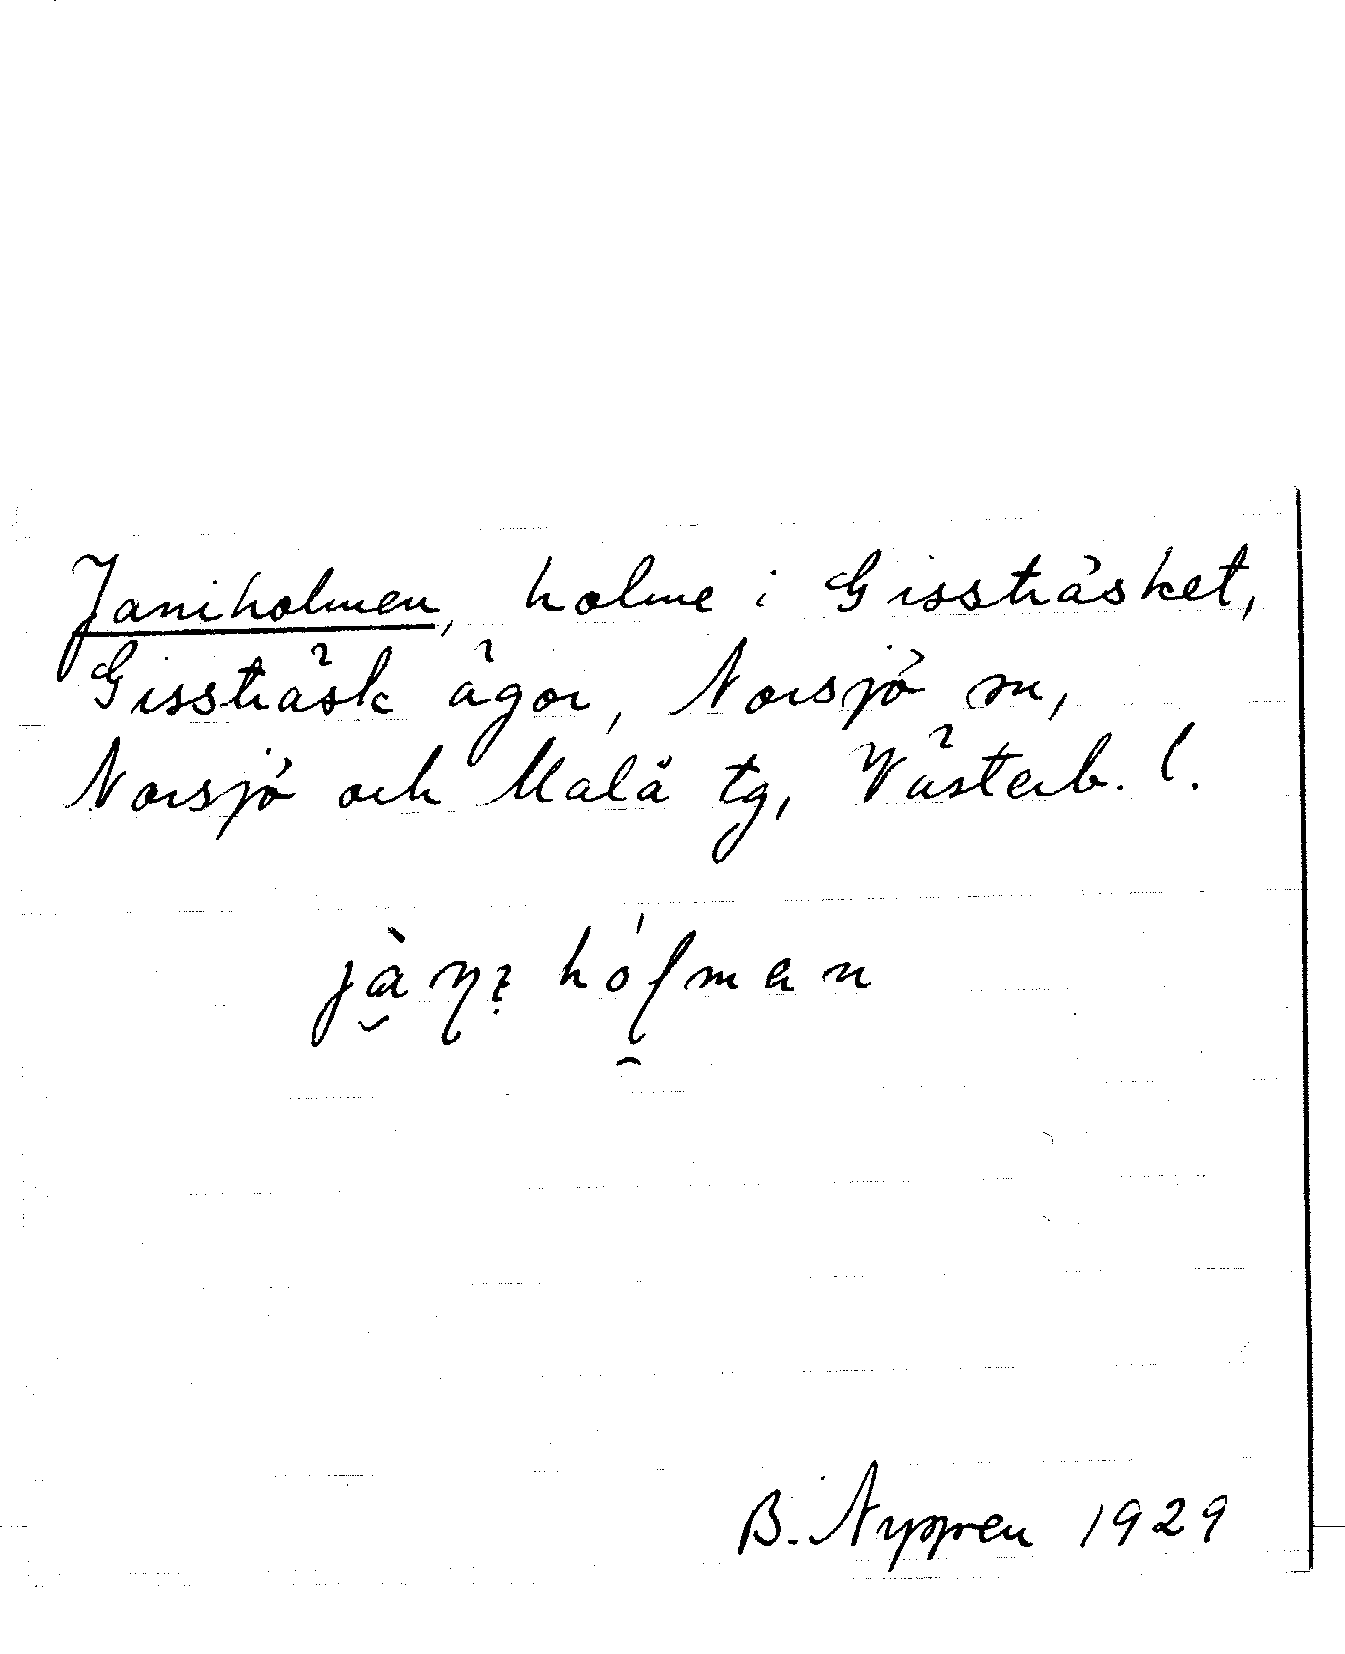 Janiholmen, holme i Gissträsket,
Gissträsk ägor, Norsjö sn,
Norsjö och Malå tg, Västerb. l.
B. Nyppen 1929